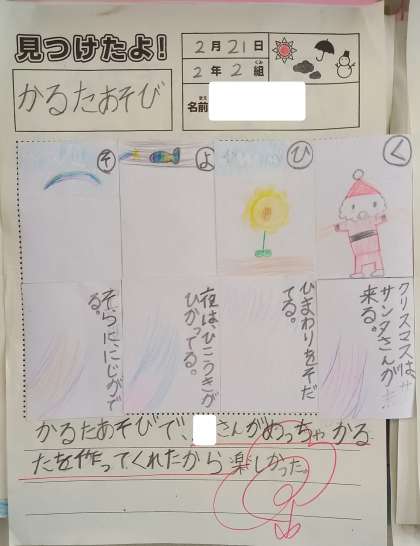 見つけたよ！
2月21日
2年2組
名前
かるたあそび
く
ひ
よ
そ
クリスマスは、
サンタさんが
来る。
ひまわりをそだ
てる。
夜は、ひこうきが
ひかってる。
そらに、にじがで
る。
かるたあそびで、さんがめっちゃかる
たを作ってくれたから楽しかった。